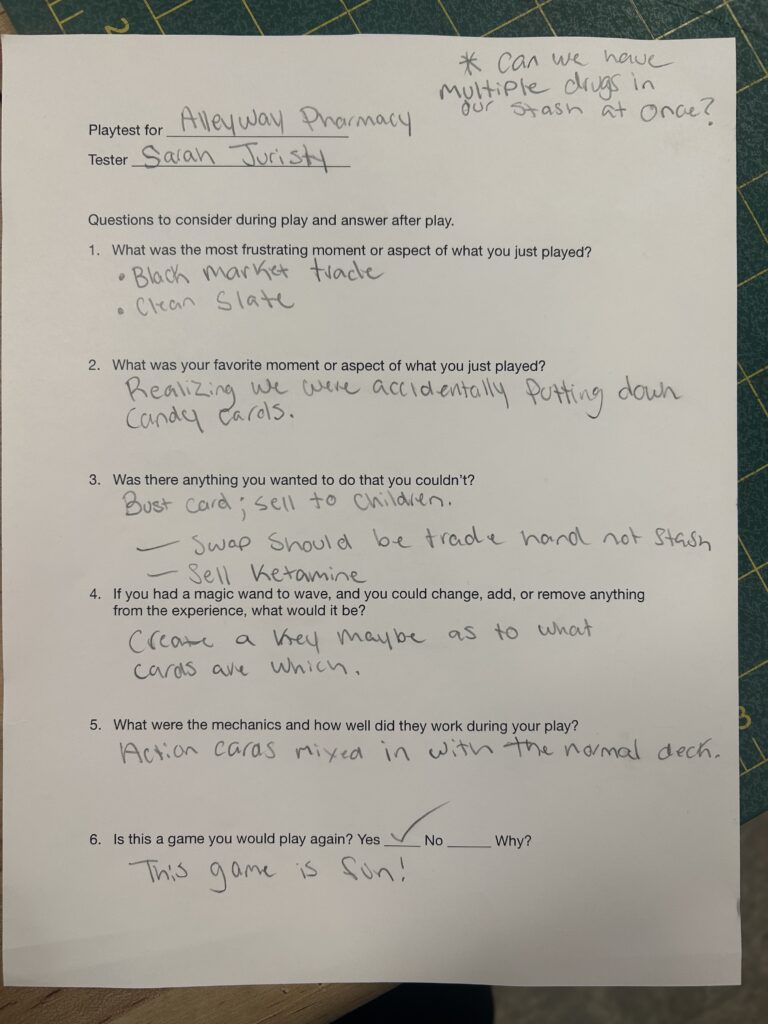 * Can we have
multiple drugs in
our stash at once?
Playtest for Alleyway Pharmacy
Tester Sarah Juristy
Questions to consider during play and answer after play.
1. What was the most frustrating moment or aspect of what you just played?
• Black market trade
• Clean Slate
2. What was your favorite moment or aspect of what you just played?
Realizing we were accidentally putting down
Candy cards.
3. Was there anything you wanted to do that you couldn't?
Bust card; sell to children.
— Swap should be trade hand not stash
— Sell Ketamine
4. If you had a magic wand to wave, and you could change, add, or remove anything
from the experience, what would it be?
Create a key maybe as to what
cards are which.
5. What were the mechanics and how well did they work during your play?
Action cards mixed in with the normal deck.
6. Is this a game you would play again? Yes ✓ No ____ Why?
This game is fun!
2
3